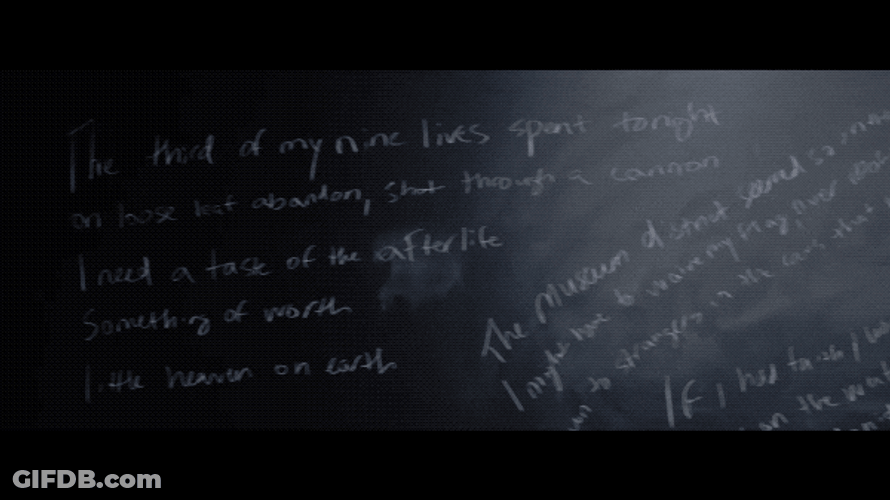 The third of my nine lives spent tonight
on loose leaf abandon, shot through a cannon
I need a taste of the afterlife
Something of worth
little heaven on earth
The Museum district seemed so
I might have to wave my flag over
to strangers in the cars that
If I had
on the
GIFDB.com